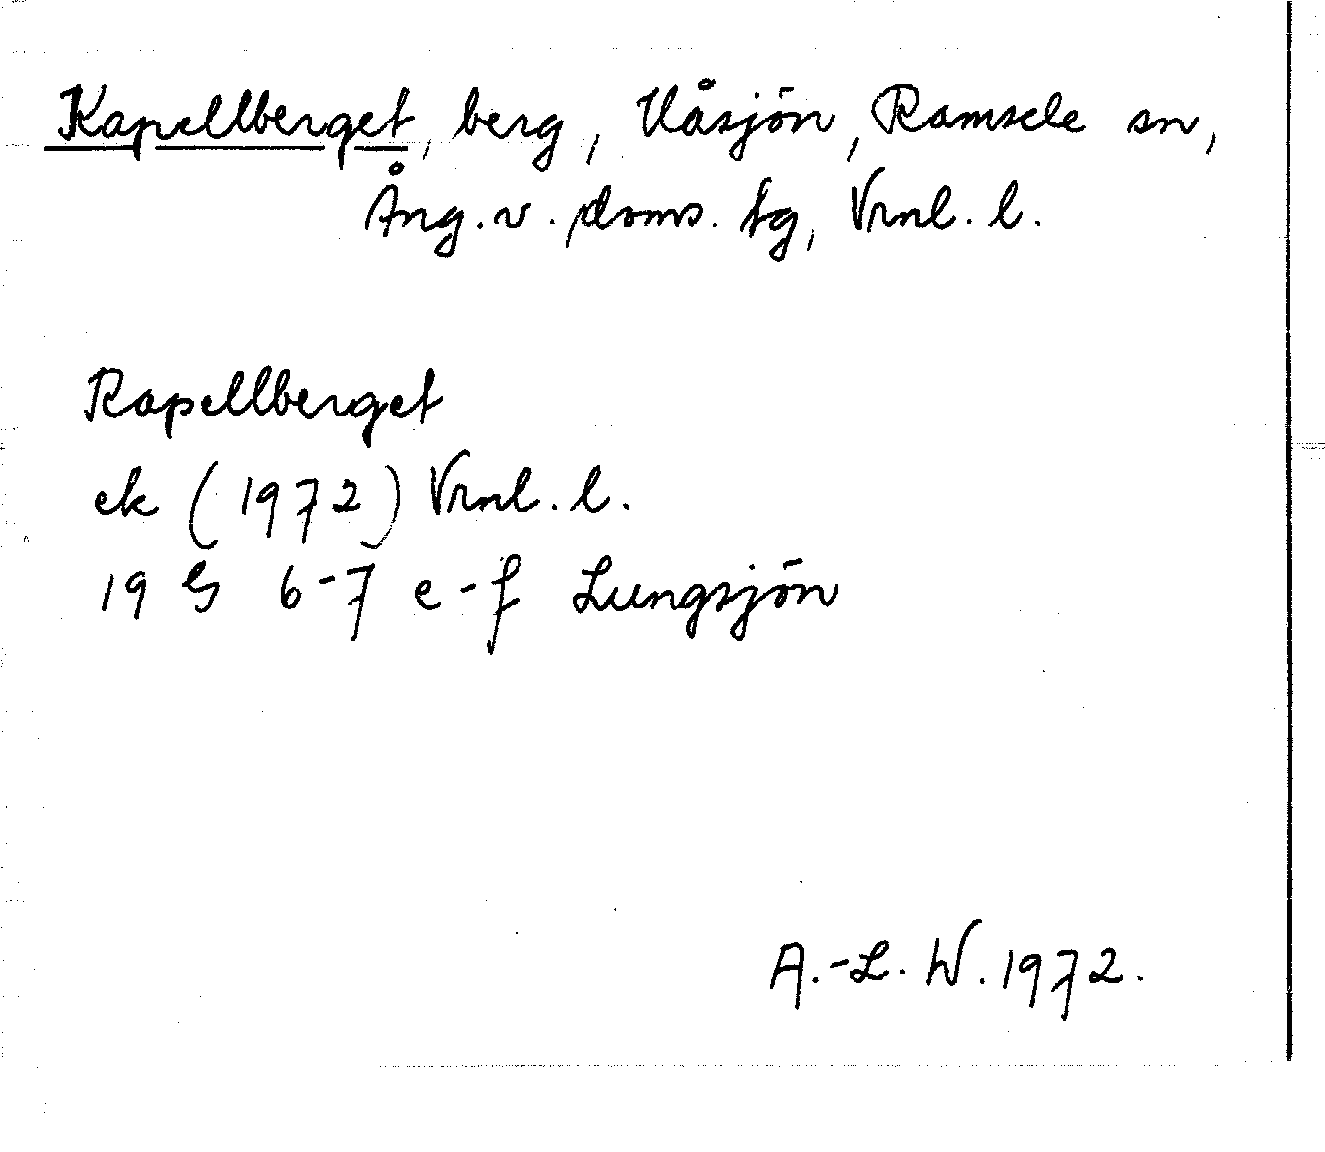 Kapellberget, berg, Våsjön, Ramsele sn,
Ång. v. doms. tg, Vrnl. l.
Kapellberget
ek (1972) Vrnl. l.
19 G 6-7 e-f Lungsjön
A.-L. W. 1972.